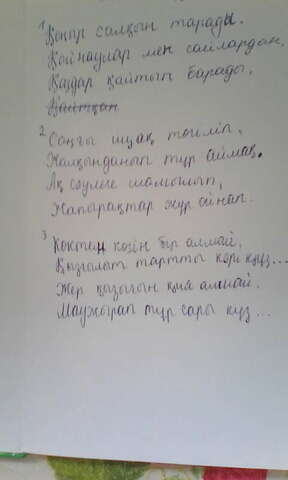 1 Қоңыр салқын тарады.
Қойнаулар мен сайлардан,
Қаздар қайтып барады,
Қайтқан
2 Соңғы шуақ төгіліп,
Жалқынданып тұр аймақ.
Ақ сәулеге шомылып,
Жапырақтар жүр ойнап.
3 Көктен көзін бір алмай,
Қызғылт тартты кәрі күз...
Жер қызығын қия алмай.
Маужырап тұр сары күз...